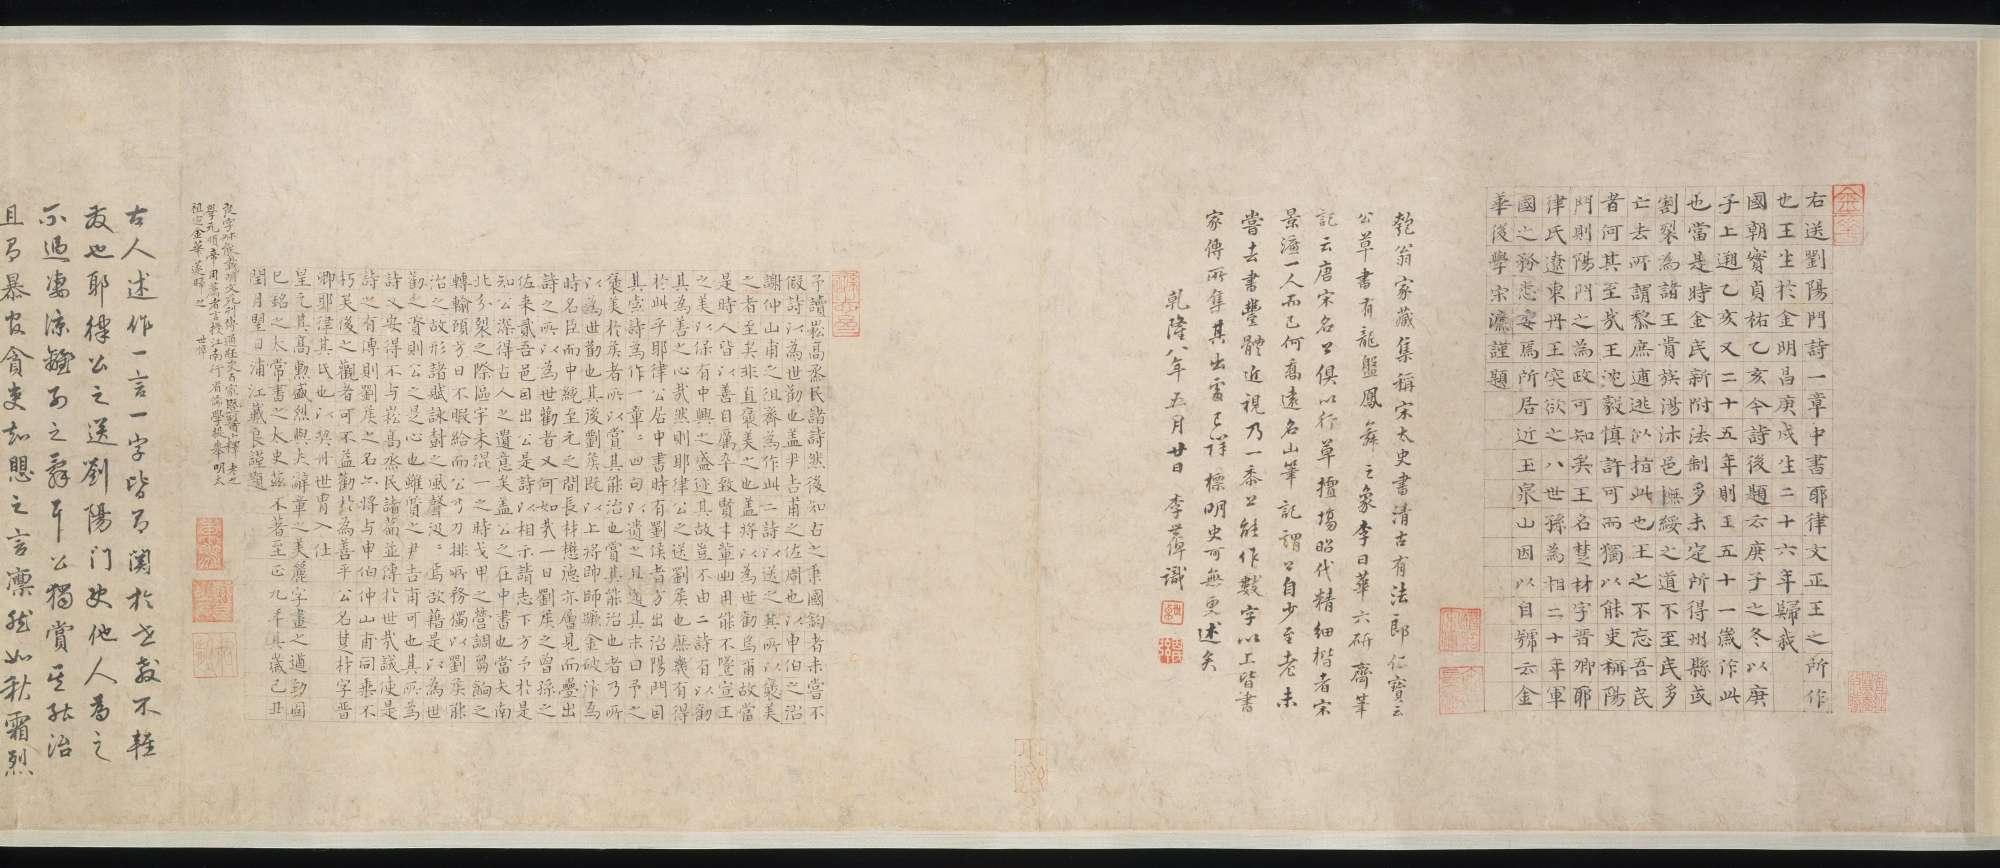 右送劉陽門詩一章中書耶律文正王之所作
也王生於金明昌庚戌生二十六年歸我
國朝實貞祐乙亥今詩後題云庚子之冬以庚
子上遡乙亥又二十五年則王五十一歲作此
也當是時金民新附法制多未定所得州縣或
割裂為諸王貴族湯沐邑撫綏之道不至民多
亡去所謂黎庶逋逃以指此也王之不忘吾民
者何其至哉王沈毅慎許可而獨以能吏稱陽
門則陽門之為政可知矣王名楚材字晉卿耶
律氏遼東丹王突欲之八世孫為相二十年軍
國之務悉安焉所居近玉泉山因以自號云金
華後學宋濂謹題
匏翁家藏集稱宋太史書清古有法郎仁寶云
公草書有龍盤鳳舞之象李日華六研齋筆
記云唐宋名公俱以行草擅場昭代精細楷者宋
景濂一人而已何喬遠名山筆記謂公自少至老未
嘗去書豐體近視乃一黍上能作數字以上皆書
家傳所集其出處已詳標明史可無更述矣
乾隆八年五月廿日 李葂識
予讀崧高烝民諸詩然後知古之秉國鈞者未嘗不
假詩以為世勸也蓋尹吉甫之佐周也以申伯之治
謝仲山甫之徂齊為作此二詩以送之其所以褒美
之者至矣非直褒美之也蓋將以為世勸焉甫故當
是時人皆以善自厲卒致賢才輩出用能不墜宣王
之美以保有中興之盛迹其故豈不由二詩有以勸
其為善之心哉然則耶律公之送劉侯也庶幾有得
於此乎耶律公居中書時有劉侯者方出治陽門因
其嘗詩為作一章二四句以遺之且道其末曰予之
褒美於侯者所以賞其能治也賞其能治也者乃所
以為世勸也其後劉侯既以上將帥師蹶金破汴為
時名臣而中統至元之間長材懋德亦層見而疊出
詩之所以為世勸者又何如哉一日劉侯之曾孫之
佐來貳吾邑因出公是詩以相示請志下方予於是
知公深得古人之遺意矣蓋公之在中書也當大南
北分裂之際區宇未混一之時戈甲之營調芻餉之
轉輸頤方日不暇給而公ㄢ刀排衆務獨以劉侯能
治之故形諸賦詠封之風聲汲二焉故藉是以為世
勸之資則公之是心也雖質之尹吉甫可也其所為
詩又安得不與崧高烝民諸篇並傳於世哉議使是
詩之有傳則劉侯之名亦將与申伯仲山甫同垂不
朽矣後之觀者可不益勸於為善乎公名楚材字晉
卿耶律其氏也以契丹世胄入仕
皇元其高勲盛烈與夫辭章之美麗字畫之遒勁固
已銘之太常書之太史茲不著至正九年其歲己丑
閏月朢日浦江戴良謹題
古人述作一言一字皆有關於世教不輕
發也耶律公之送劉陽門使他人為之
不過凄涼離別之辭耳公獨賞其能治
且有暴官貪吏知愳之言凜然如秋霜烈